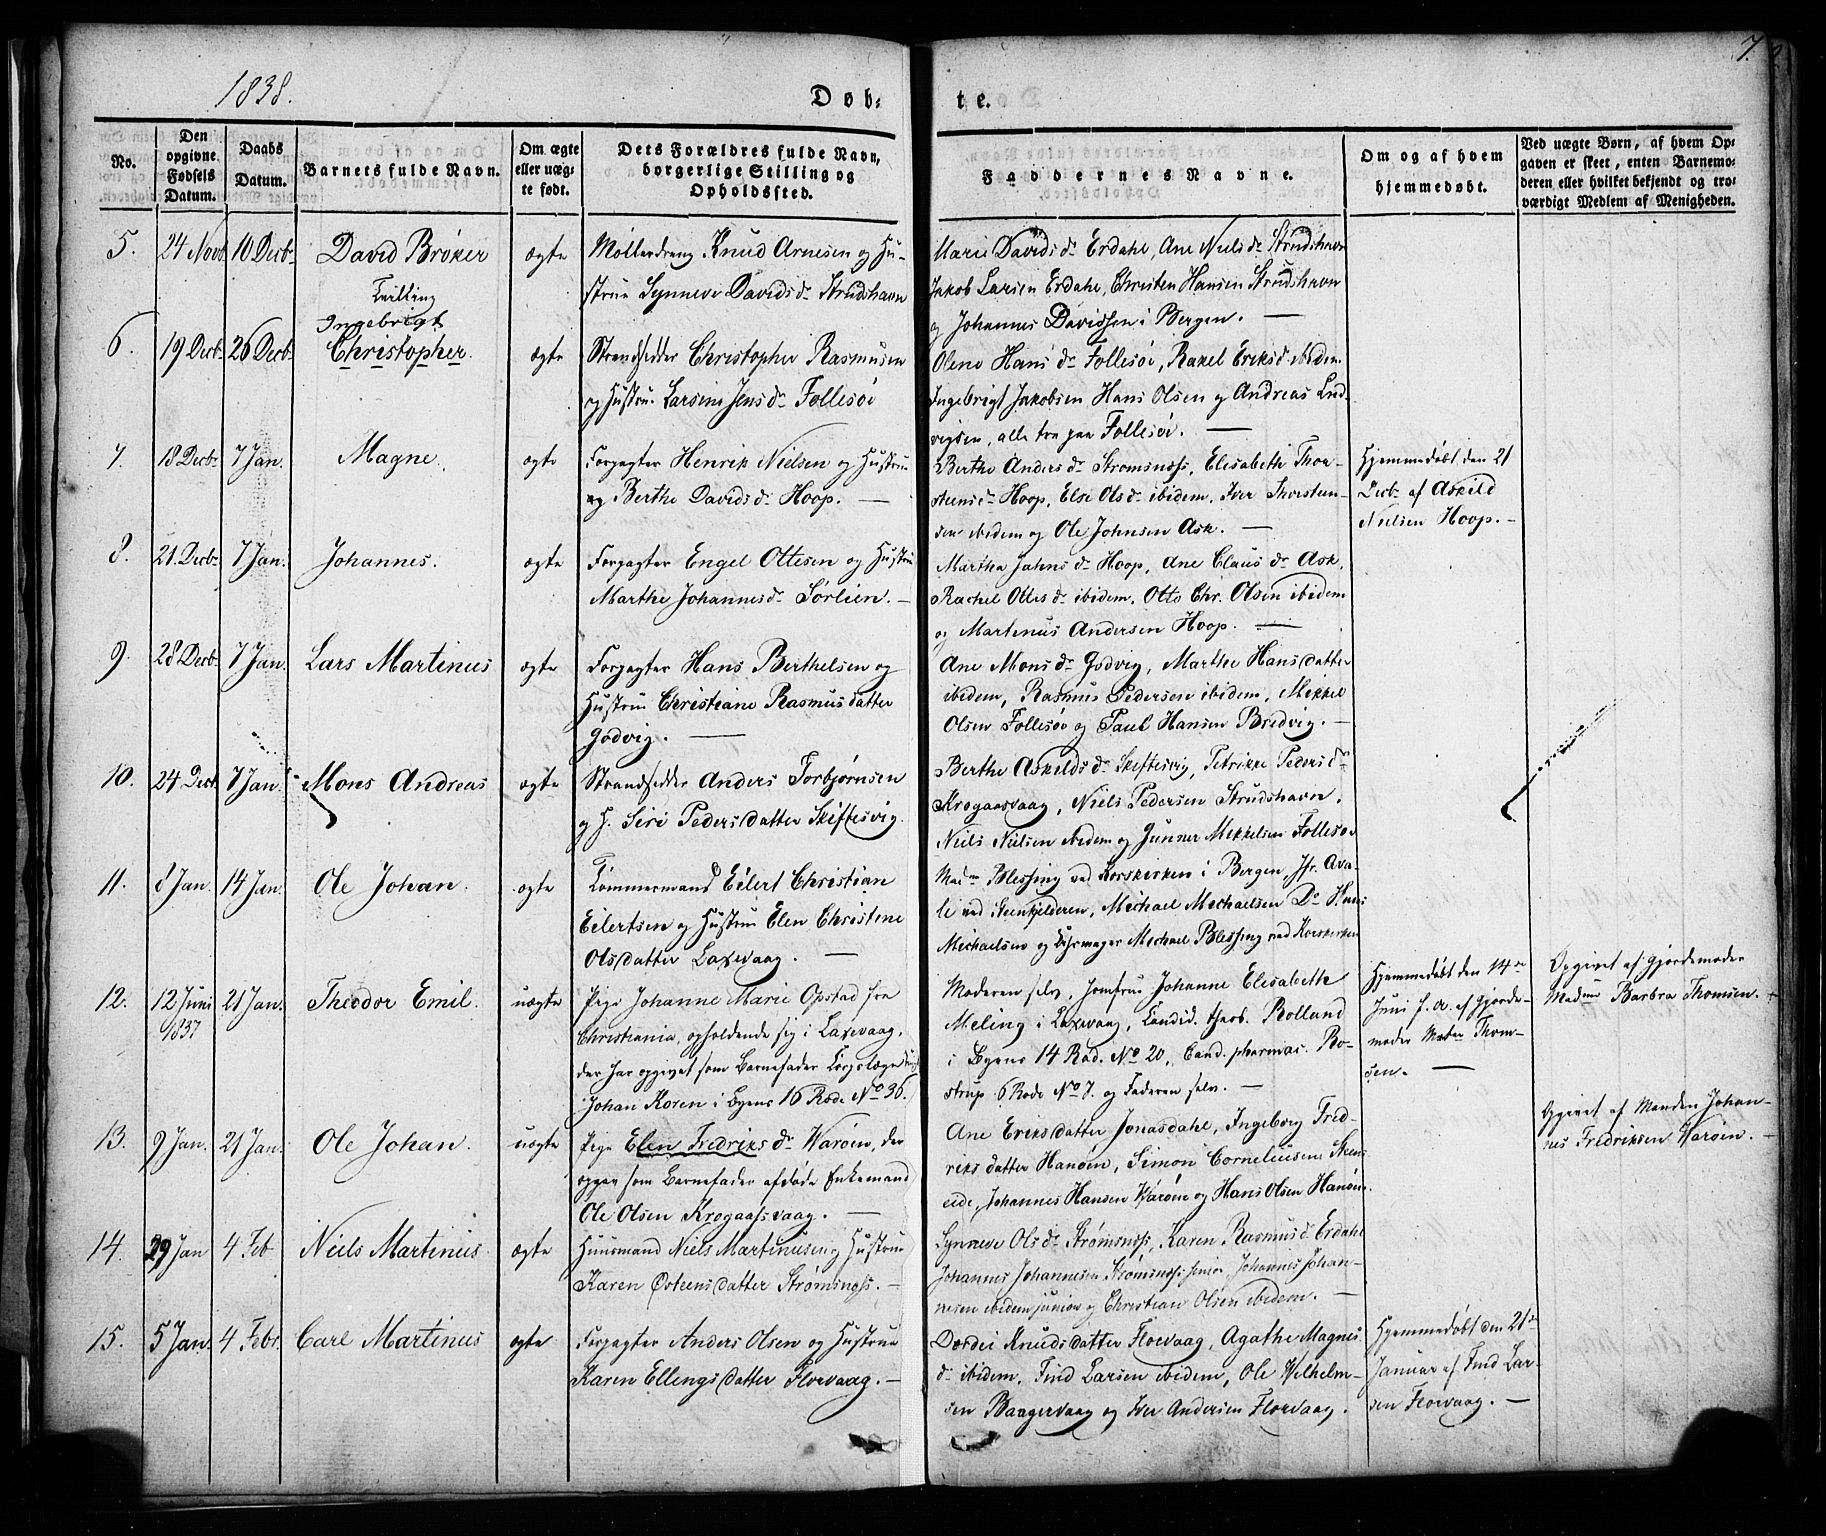 1838.
Døb-
te.
7.
No.
Den opgivne Fødsels Datum.
Daabs Datum.
Barnets fulde Navn.
Om ægte eller uægte født.
Dets Forældres fulde Navn, borgerlige Stilling og Opholdssted.
Faddernes Navne.
Om og af hvem hjemmedøbt.
Ved uægte Børn, af hvem Opgaven er skeet, enten Barnemoderen eller hvilket bekjendt og troværdigt Medlem af Menigheden.
5. 24 Novb 10 Decb. David Brøker ægte Mølledreng Knud Arnesen og Hu-
strue Synneve Davids dr Strudshavn
Marie Davids dr Erdahl, Ane Niels dr Strudshavn
Jakob Larsen Erdahl, Christen Hansen Strudshavn
og Johannes Davidsen i Bergen. —
Tvilling
Ingebrigt
6. 19 Decb. 26 Decb. Christopher. ægte Strandsidder Christopher Rasmusen
og Hustrue Larsine Jens dr Follesøe
Olene Hans dr Follesøe, Rakel Eriks d. ibidem.
Ingebrigt Jakobsen Hans Olsen og Andreas Lud-
vigsen, alle tre paa Follesøe. —
7. 18 Decbr 7 Jan. Magne. ægte Forpagter Henrik Nielsen og Hustrue
og Berthe Davids dr Hoop. —
Berthe Anders dr Strømsnæss, Elisabeth Thor-
steens dr Hoop, Else Ols dr ibidem, Iver Thorsteen-
sen ibidem og Ole Johnsen Ask. —
Hjemmedøbt den 21
Decbr af Askild
Nielsen Hoop. —
8. 21 Decbr 7 Jan. Johannes. ægte Forpagter Engel Ottesen og Hustrue
Marthe Johannes dr Sørlien. —
Martha Jahns dr Hoop, Ane Claus dr Ask,
Rachel Ottes dr ibidem, Otto Chr. Olsen ibidem
og Martinus Andersen Hoop. —
9. 28 Decb. 7 Jan. Lars Martinus ægte Forpagter Hans Berthelsen og
Hustrue Christiane Rasmusdatter
Godvig. —
Ane Mons dr Godvig, Marthe Hansdatter
ibidem, Rasmus Pedersen ibidem, Mikkel
Olsen Follesøe og Paul Hansen Bredvig. —
10. 24 Decb. 7 Jan. Mons Andreas ægte Strandsidder Anders Torbjørnsen
og H. Siri Pedersdatter Skiftesvig.
Berthe Askelds dr Skiftesvig, Petrikke Peders dr
Krogaasvaag, Niels Pedersen Strudshavn,
Niels Nielsen ibidem og Gunner Mikkelsen Follesøe
11. 8 Jan. 14 Jan. Ole Johan. ægte Tømmermand Eilert Christian
Eilertsen og Hustrue Elen Christine
Olsdatter Laxevaag. —
Madm Blessing ved Korskirken i Bergen, Jfr. Ava-
le ved Steenkjelderen, Michael Michaelsen Dr Hans
Michaelsen og Uhrmager Michael Blessing ved Korskirken
12. 12 Juni 1837 21 Jan. Theodor Emil. uægte Pige Johanne Marie Opstad fra
Christiania, opholdende sig i Laxevaag,
der har opgivet som Barnefader Corpslæge
Johan Koren i Byens 16 Rode No 36.
Moderen selv, Jomfrue Johanne Elisabeth
Meling i Laxevaag, Candid. theol. Rolland
i Byens 14 Rod. No 20, Cand. pharmac. Ro-
strup 6 Rode No 7. og Faderen selv. —
Hjemmedøbt den 14de
Juni f. A. af Gjorde-
moder Madm Thom-
sen. —
Opgivet af Gjordemoder
Madme Barbra Thomsen. —
13. 9 Jan. 21 Jan. Ole Johan. uægte Pige Elen Fredriks dr Warøen, der
opgav som Barnefader afdøde Enkemand
Ole Olsen Krogaasvaag. —
Ane Eriksdatter Jonasdahl, Ingeborg Fred-
riksdatter Hanøen, Simon Corneliusen Steens-
eide, Johannes Hansen Warøen og Hans Olsen Hanøen.
Opgivet af Manden Johan-
nes Fredriksen Warøen. —
14. 29 Jan 4 Feb Niels Martinus ægte Huusmand Niels Martinusen og Hustrue
Karen Østensdatter Strømsnæss. —
Synneve Ols dr Strømsnæss, Karen Rasmus d. Erdahl
Johannes Johannesen Strømsnæss senior, Johannes Johan-
nesen ibidem junior og Christian Olsen ibidem. —
15. 5 Jan. 4 Febr. Carl Martinus ægte Forpagter Anders Olsen og Hustrue
Karen Ellingsdatter Florvaag. —
Dordei Knudsdatter Florvaag, Agathe Magnes
dr ibidem, Find Larsen ibidem, Ole Wilhelm-
sen Baagervaag og Iver Andersen Florvaag.
Hjemmedøbt den 21de
Januar af Find Lar-
sen Florvaag. —